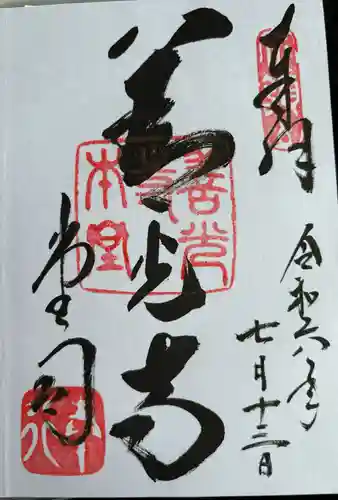 奉拝
令和六年
七月十三日
善光寺
堂司
本堂